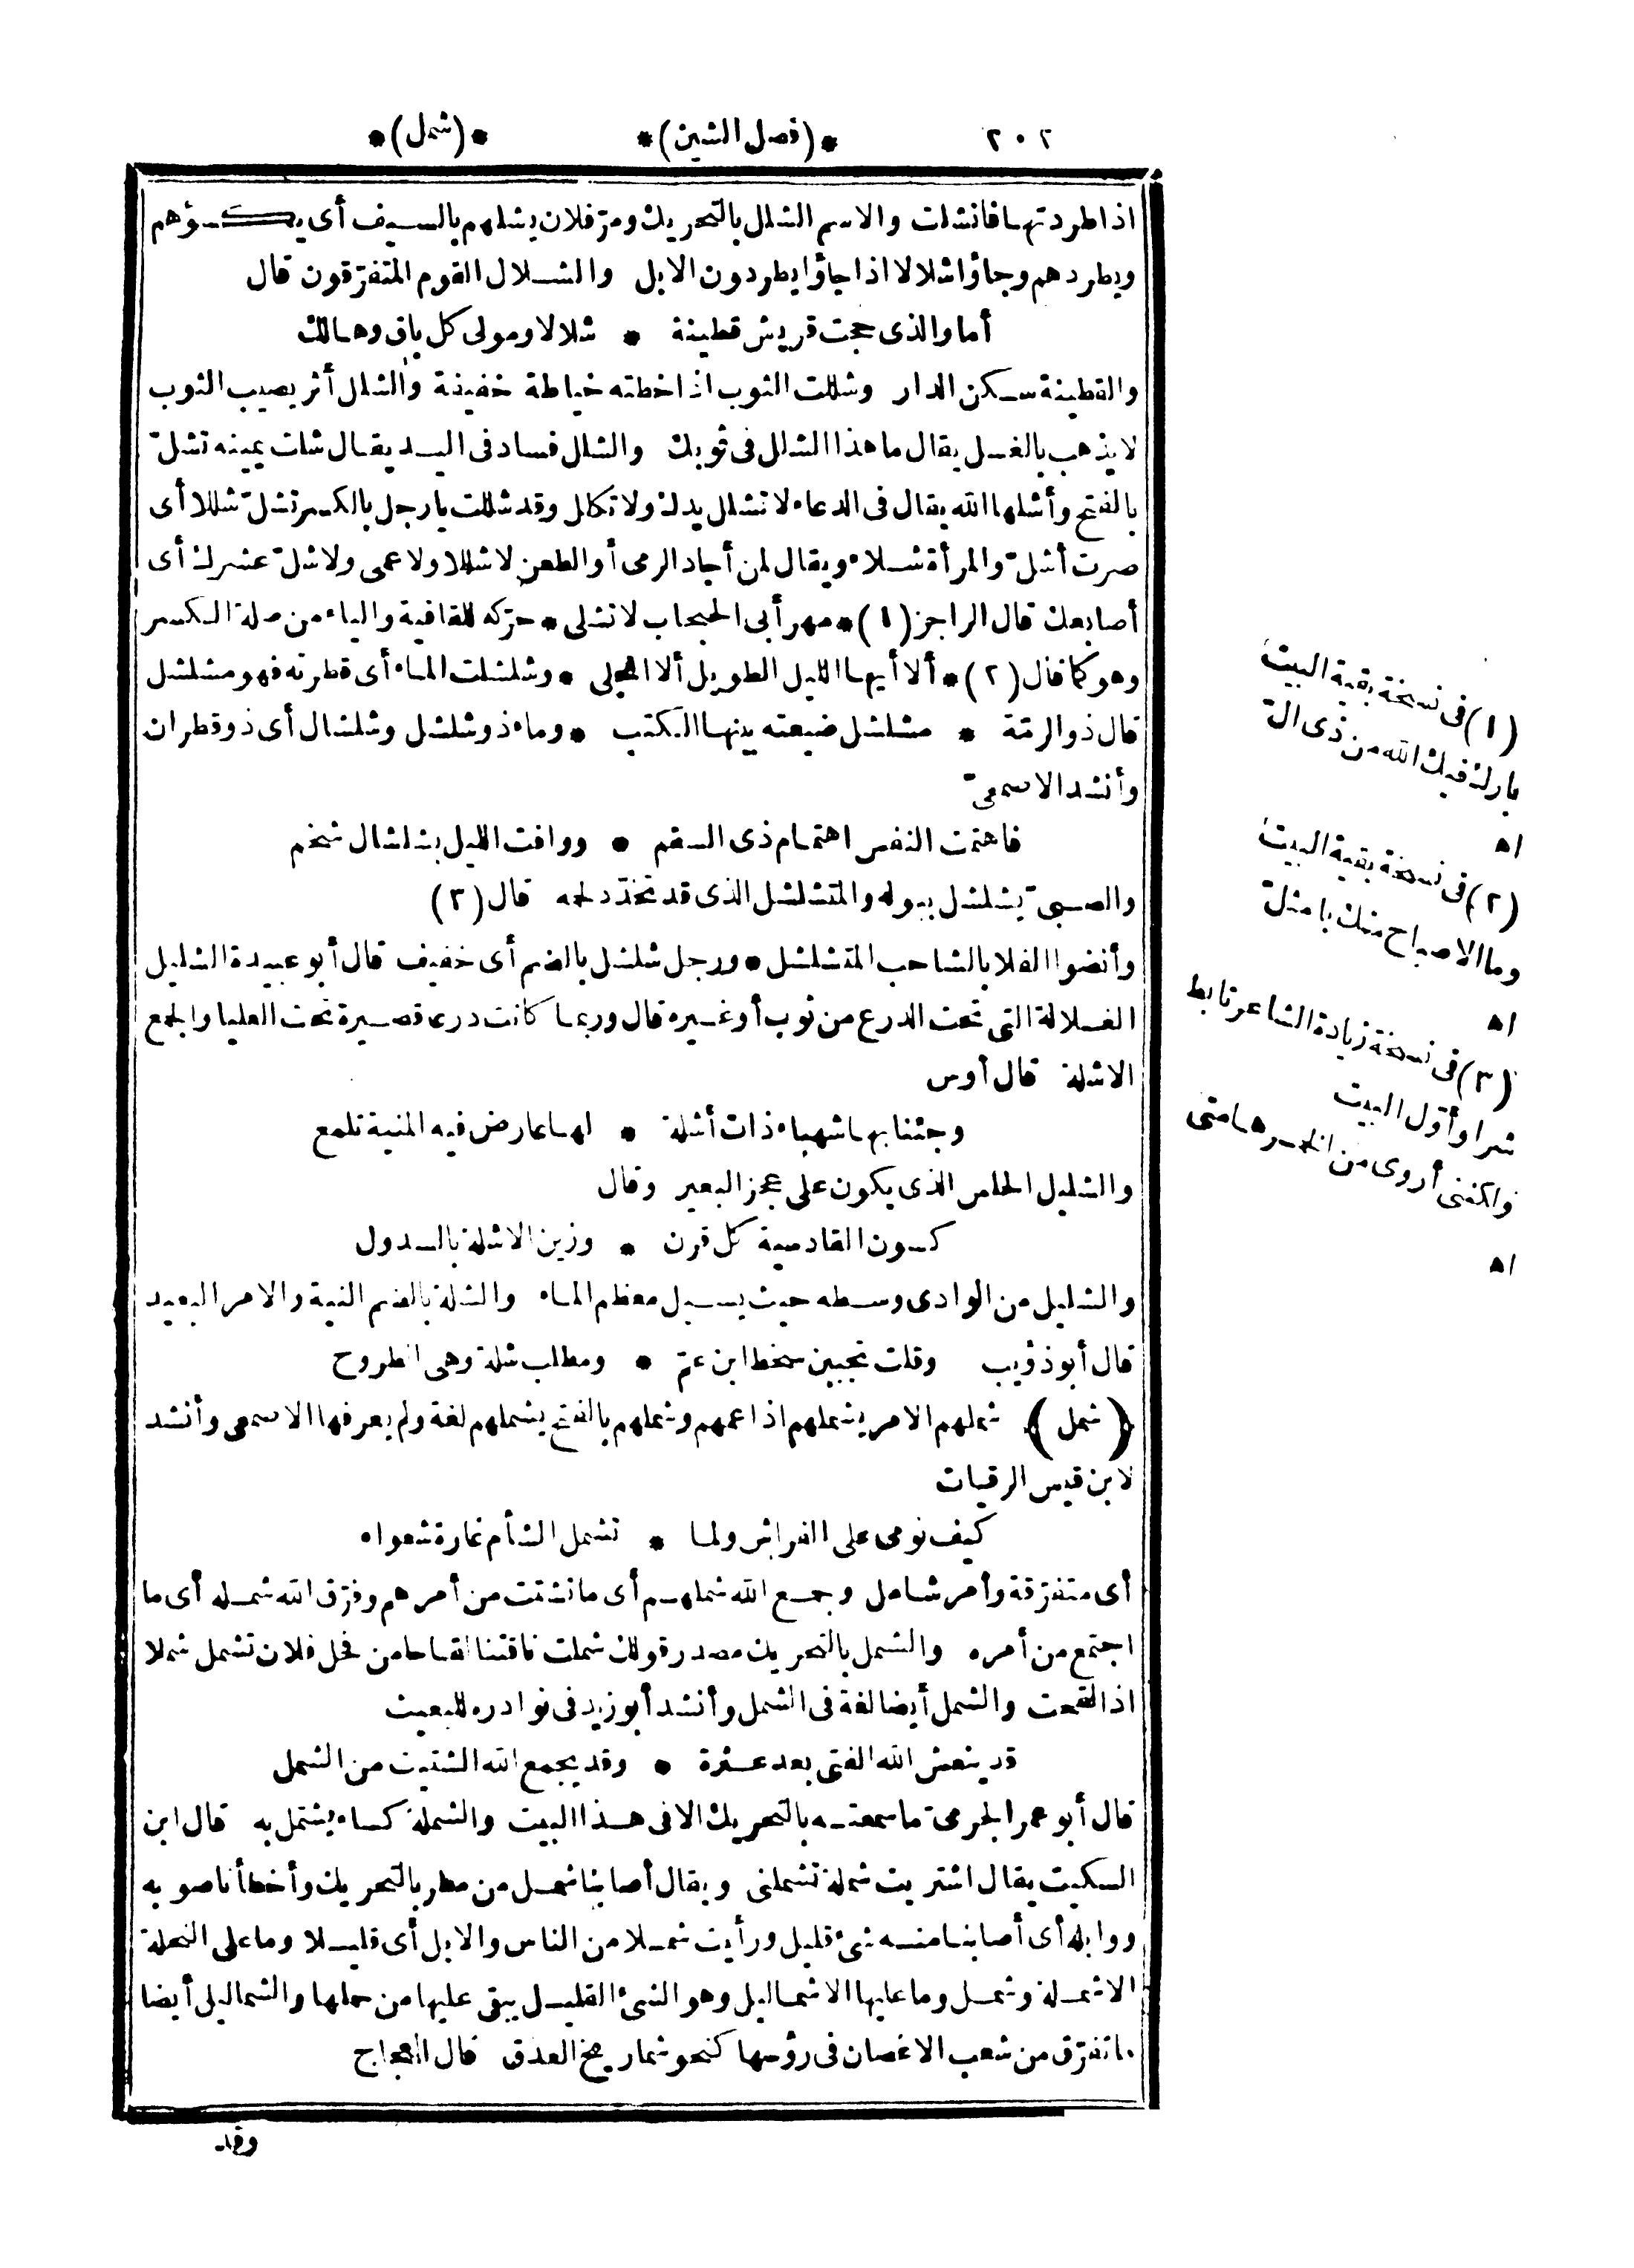 ٢٠٢ *(فصل الشين)* *(شمل)*
اذا طردتها فانشلت والاسم الشلل بالتحريك ومرّ فلان يشلهم بالسيف أى يكسؤهم
ويطردهم وجاؤا شلالا اذا جاؤا يطردون الابل والشلال القوم المتفرّقون قال
أما والذى حجت قريش قطينة * شلالا ومولى كل باق وهالك
والقطينة سكن الدار وشللت الثوب اذا خطته خياطة خفيفة والشلل أثر يصيب الثوب
لا يذهب بالغسل يقال ما هذا الشلل فى ثوبك والشلل فساد فى اليد يقال شلت يمينه تشلّ
بالفتح وأشلها الله يقال فى الدعاء لا تشلل يدك ولا تكلل وقد شللت يا رجل بالكسر تشلّ شللا أى
صرت أشلّ والمرأة شلاء ويقال لمن أجاد الرمى أو الطعن لا شللا ولا عمى ولا شلّ عشرك أى
أصابعك قال الراجز (١) * مهر أبى الحبحاب لا تشلى * حرّكه للقافية والياء من صلة الكسر
وهو كما قال (٢) * ألا أيها الليل الطويل ألا انجلى * وشلشلت الماء أى قطرته فهو مشلشل
قال ذو الرمّة * مشلشل ضيعته بينها الكتب * وماء ذو شلشل وشلشال أى ذو قطران
وأنشد الاصمعىّ
فاهتمت النفس اهتمام ذى السقم * ووافت الليل بشلشال شخم
والصبىّ يشلشل ببوله والمتشلشل الذى قد تخدّد لحمه قال (٣)
وأنضوا الفلا بالشاحب المتشلشل * ورجل شلشل بالضم أى خفيف قال أبو عبيدة الشليل
الغلالة التى تحت الدرع من ثوب أو غيره قال وربما كانت درعا قصيرة تحت العليا والجمع
الاشلة قال أوس
وجئنا بها شهباء ذات أشلة * لها عارض فيه المنية تلمع
والشليل الحلس الذى يكون على عجز البعير وقال
كسون القادسية كل قرن * وزين الاشلة بالسدول
والشليل من الوادى وسطه حيث يسيل معظم الماء والشلة بالضم النية والامر البعيد
قال أبو ذؤيب وقلت تجنبن سخط ابن عمّ * ومطلب شلة وهى الطروح
﴿شمل﴾ شملهم الامر يشملهم اذا عمهم وشملهم بالفتح يشملهم لغة ولم يعرفها الاصمعى وأنشد
لابن قيس الرقيات
كيف نومى على الفراش ولما * تشمل الشأم غارة شعواء
أى متفرّقة وأمر شامل وجمع الله شملهم أى ما تشتت من أمرهم وفرّق الله شمله أى ما
اجتمع من أمره والشمل بالتحريك مصدر قولك شملت ناقتنا لقاحا من فحل فلان تشمل شملا
اذا لقحت والشمل أيضا لغة فى الشمل وأنشد أبو زيد فى نوادره للبعيث
قد ينعش الله الفتى بعد عثرة * وقد يجمع الله الشتيت من الشمل
قال أبو عمر الجرمىّ ما سمعته بالتحريك الا فى هذا البيت والشملة كساء يشتمل به قال ابن
السكيت يقال اشتريت شملة تشملنى ويقال أصابنا شمل من مطر بالتحريك وأخطأنا صوبه
ووابله أى أصابنا منه شئ قليل ورأيت شملا من الناس والابل أى قليلا وما على النخلة
الا شملة وشمل وما عليها الا شماليل وهو الشئ القليل يبقى عليها من حملها والشماليل أيضا
ما تفرّق من شعب الاغصان فى رؤسها كنحو شماريخ العذق قال العجاج
وقد
(١) فى نسخة بقية البيت
بارك فيك الله من ذى الّ
اه
(٢) فى نسخة بقية البيت
وما الاصباح منك بامثلّ
اه
(٣) فى نسخة زيادة الشاعر تابط
شرا وأوّل البيت
ولكننى أروى من الخمر هامتى
اه